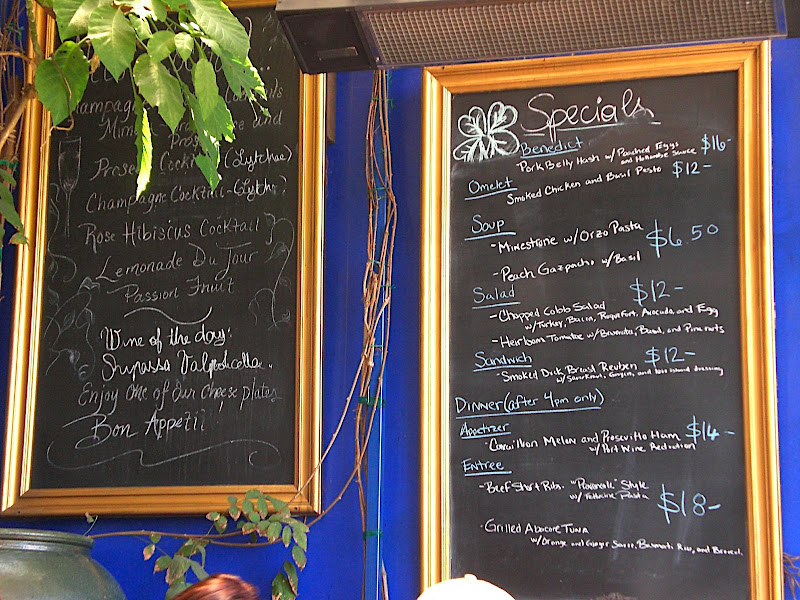 Cocktails
Champagne
and
Prosecco Cocktail (Lytchee)
Champagne Cocktail-Lytch
Rose Hibiscus Cocktail
Lemonade Du Jour
Passion Fruit
Wine of the day:
Enjoy One of Our Cheese plates
Bon Appetit!
Specials
Benedict
-Pork Belly Hash w/ Poached Eggs $16-
and Hollandaise Sauce
Omelet
Smoked Chicken and Basil Pesto $12-
Soup
-Minestrone w/ Orzo Pasta $6.50
-Peach Gazpacho w/ Basil
Salad $12-
-Chopped Cobb Salad
w/ Turkey, Bacon, Roquefort, Avocado, and Egg
-Heirloom Tomatoe w/ Basil, and Pine nuts
Sandwich $12-
-Smoked Duck Breast Reuben
w/ Sauerkraut, Gruyere, and 1000 island dressing
Dinner (after 4pm only)
Appetizer
-Cavaillon Melon and Prosciutto Ham $14-
w/ Port Wine Reduction
Entree
-Beef Short Ribs "Provencale" Style
w/ Pasta $18-
-Grilled Abacore Tuna
w/ Orange and Ginger Sauce, Basmati Rice, and Broccoli